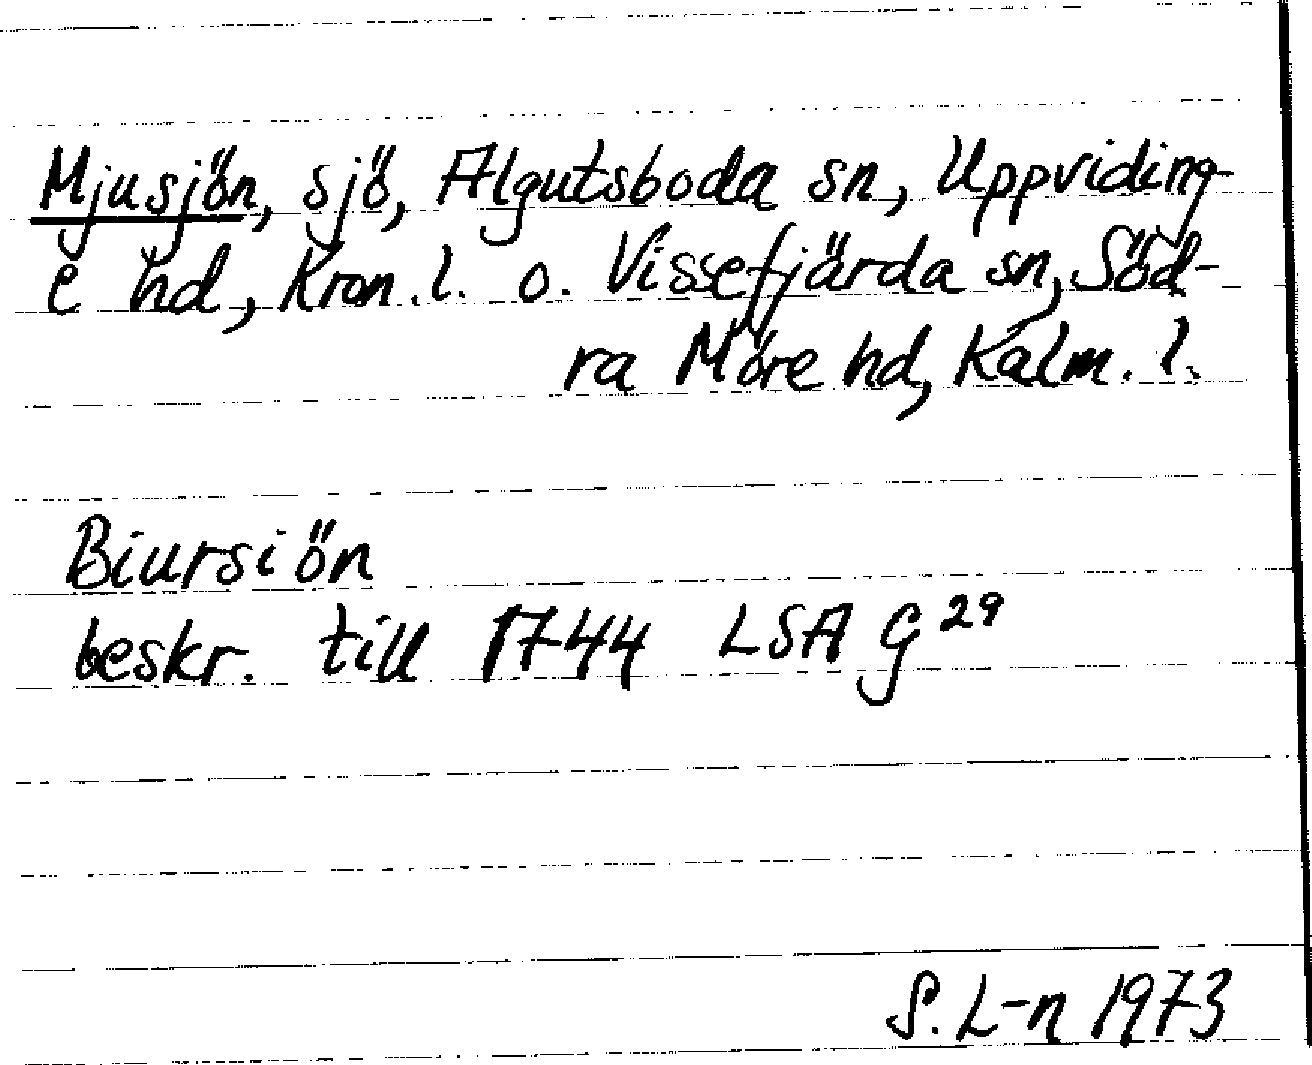 Mjusjön, sjö, Algutsboda sn, Uppviding-
e hd, Kron. l. o. Vissefjärda sn, Söd-
ra Möre hd, Kalm. l.
Biursiön
beskr. till 1744 LSA G 29
S. L-n 1973